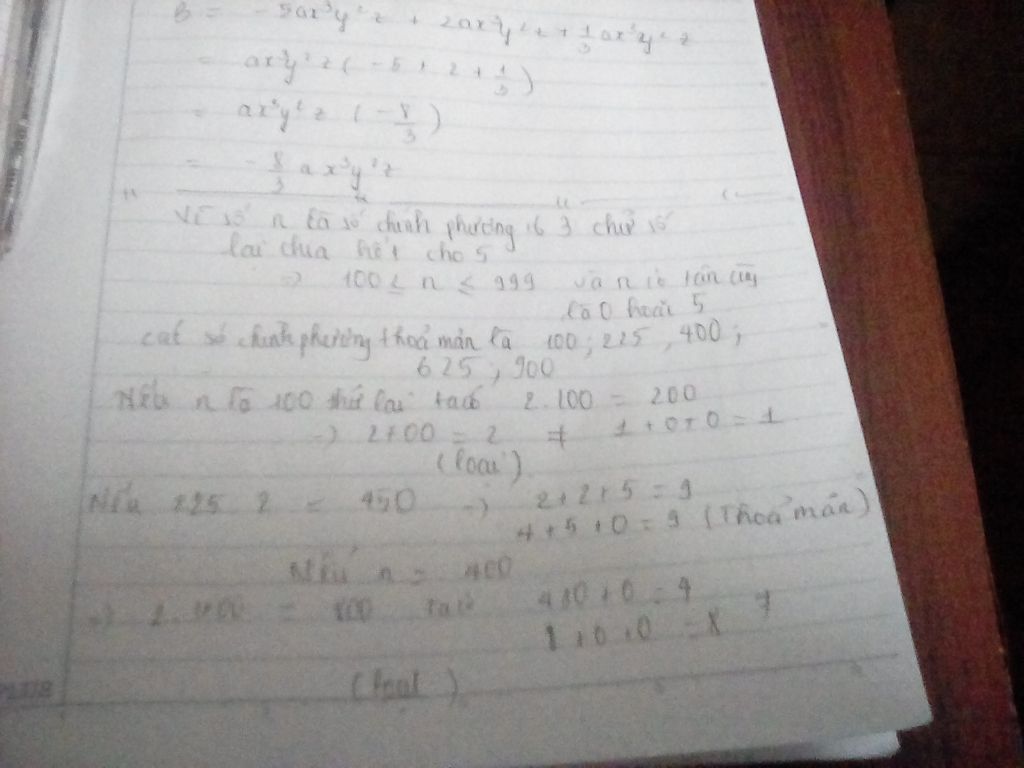 B = - 5ax³y²z + 2ax³y²z + 1/3 ax³y²z
= ax³y²z ( - 5 + 2 + 1/3 )
= ax³y²z ( - 8/3 )
= - 8/3 ax³y²z
Vì số n là số chính phương có 3 chữ số
lại chia hết cho 5
=> 100 ≤ n ≤ 999 và n có tận cùng
là 0 hoặc 5
các số chính phương thoả mãn là 100 ; 225 , 400 ;
625 , 900
Nếu n là 100 thử lại ta có 2.100 = 200
=> 2+00 = 2 ≠ 1 + 0 + 0 = 1
(loại)
Nếu 225 2 = 450 => 2+2+5 = 9
4 + 5 + 0 = 9 (Thoả mãn)
Nếu n = 400
=> 2.400 = 800 ta có 4+0+0 = 4 ≠
8+0+0 = 8
(loại)